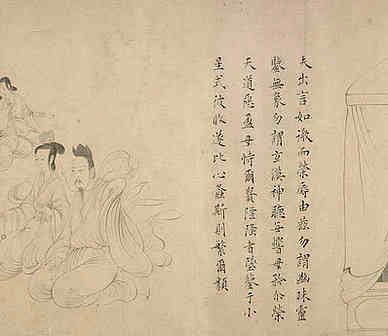 夫出言如微而榮辱由茲勿謂幽昧靈
鑒無象勿謂玄漠神聽毋響毋矜尒榮
天道惡盈毋恃爾貴隆隆者墜鑒于小
星式彼攸遂比心螽斯則繁爾類